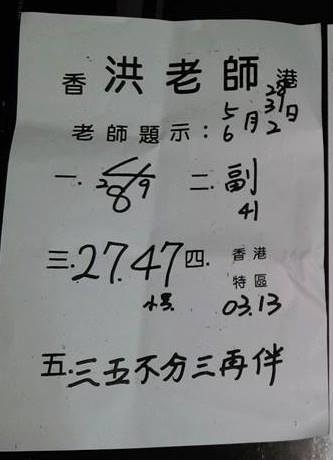 香 洪老師 港
老師題示：5/6月29 31/2日
一. 2 8 9 二. 副 41
三. 27.47 四. 香港特區 03.13
五. 三五不分三再伴